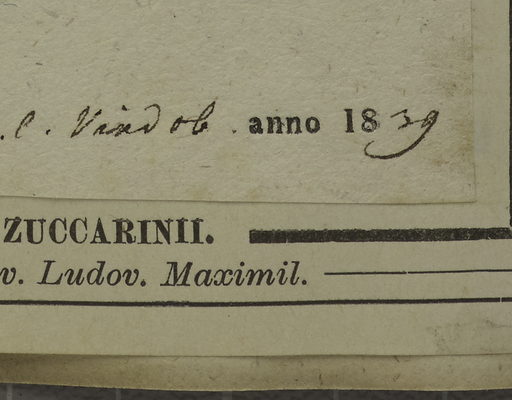 . c. Vindob. anno 1839
ZUCCARINII.
v. Ludov. Maximil.